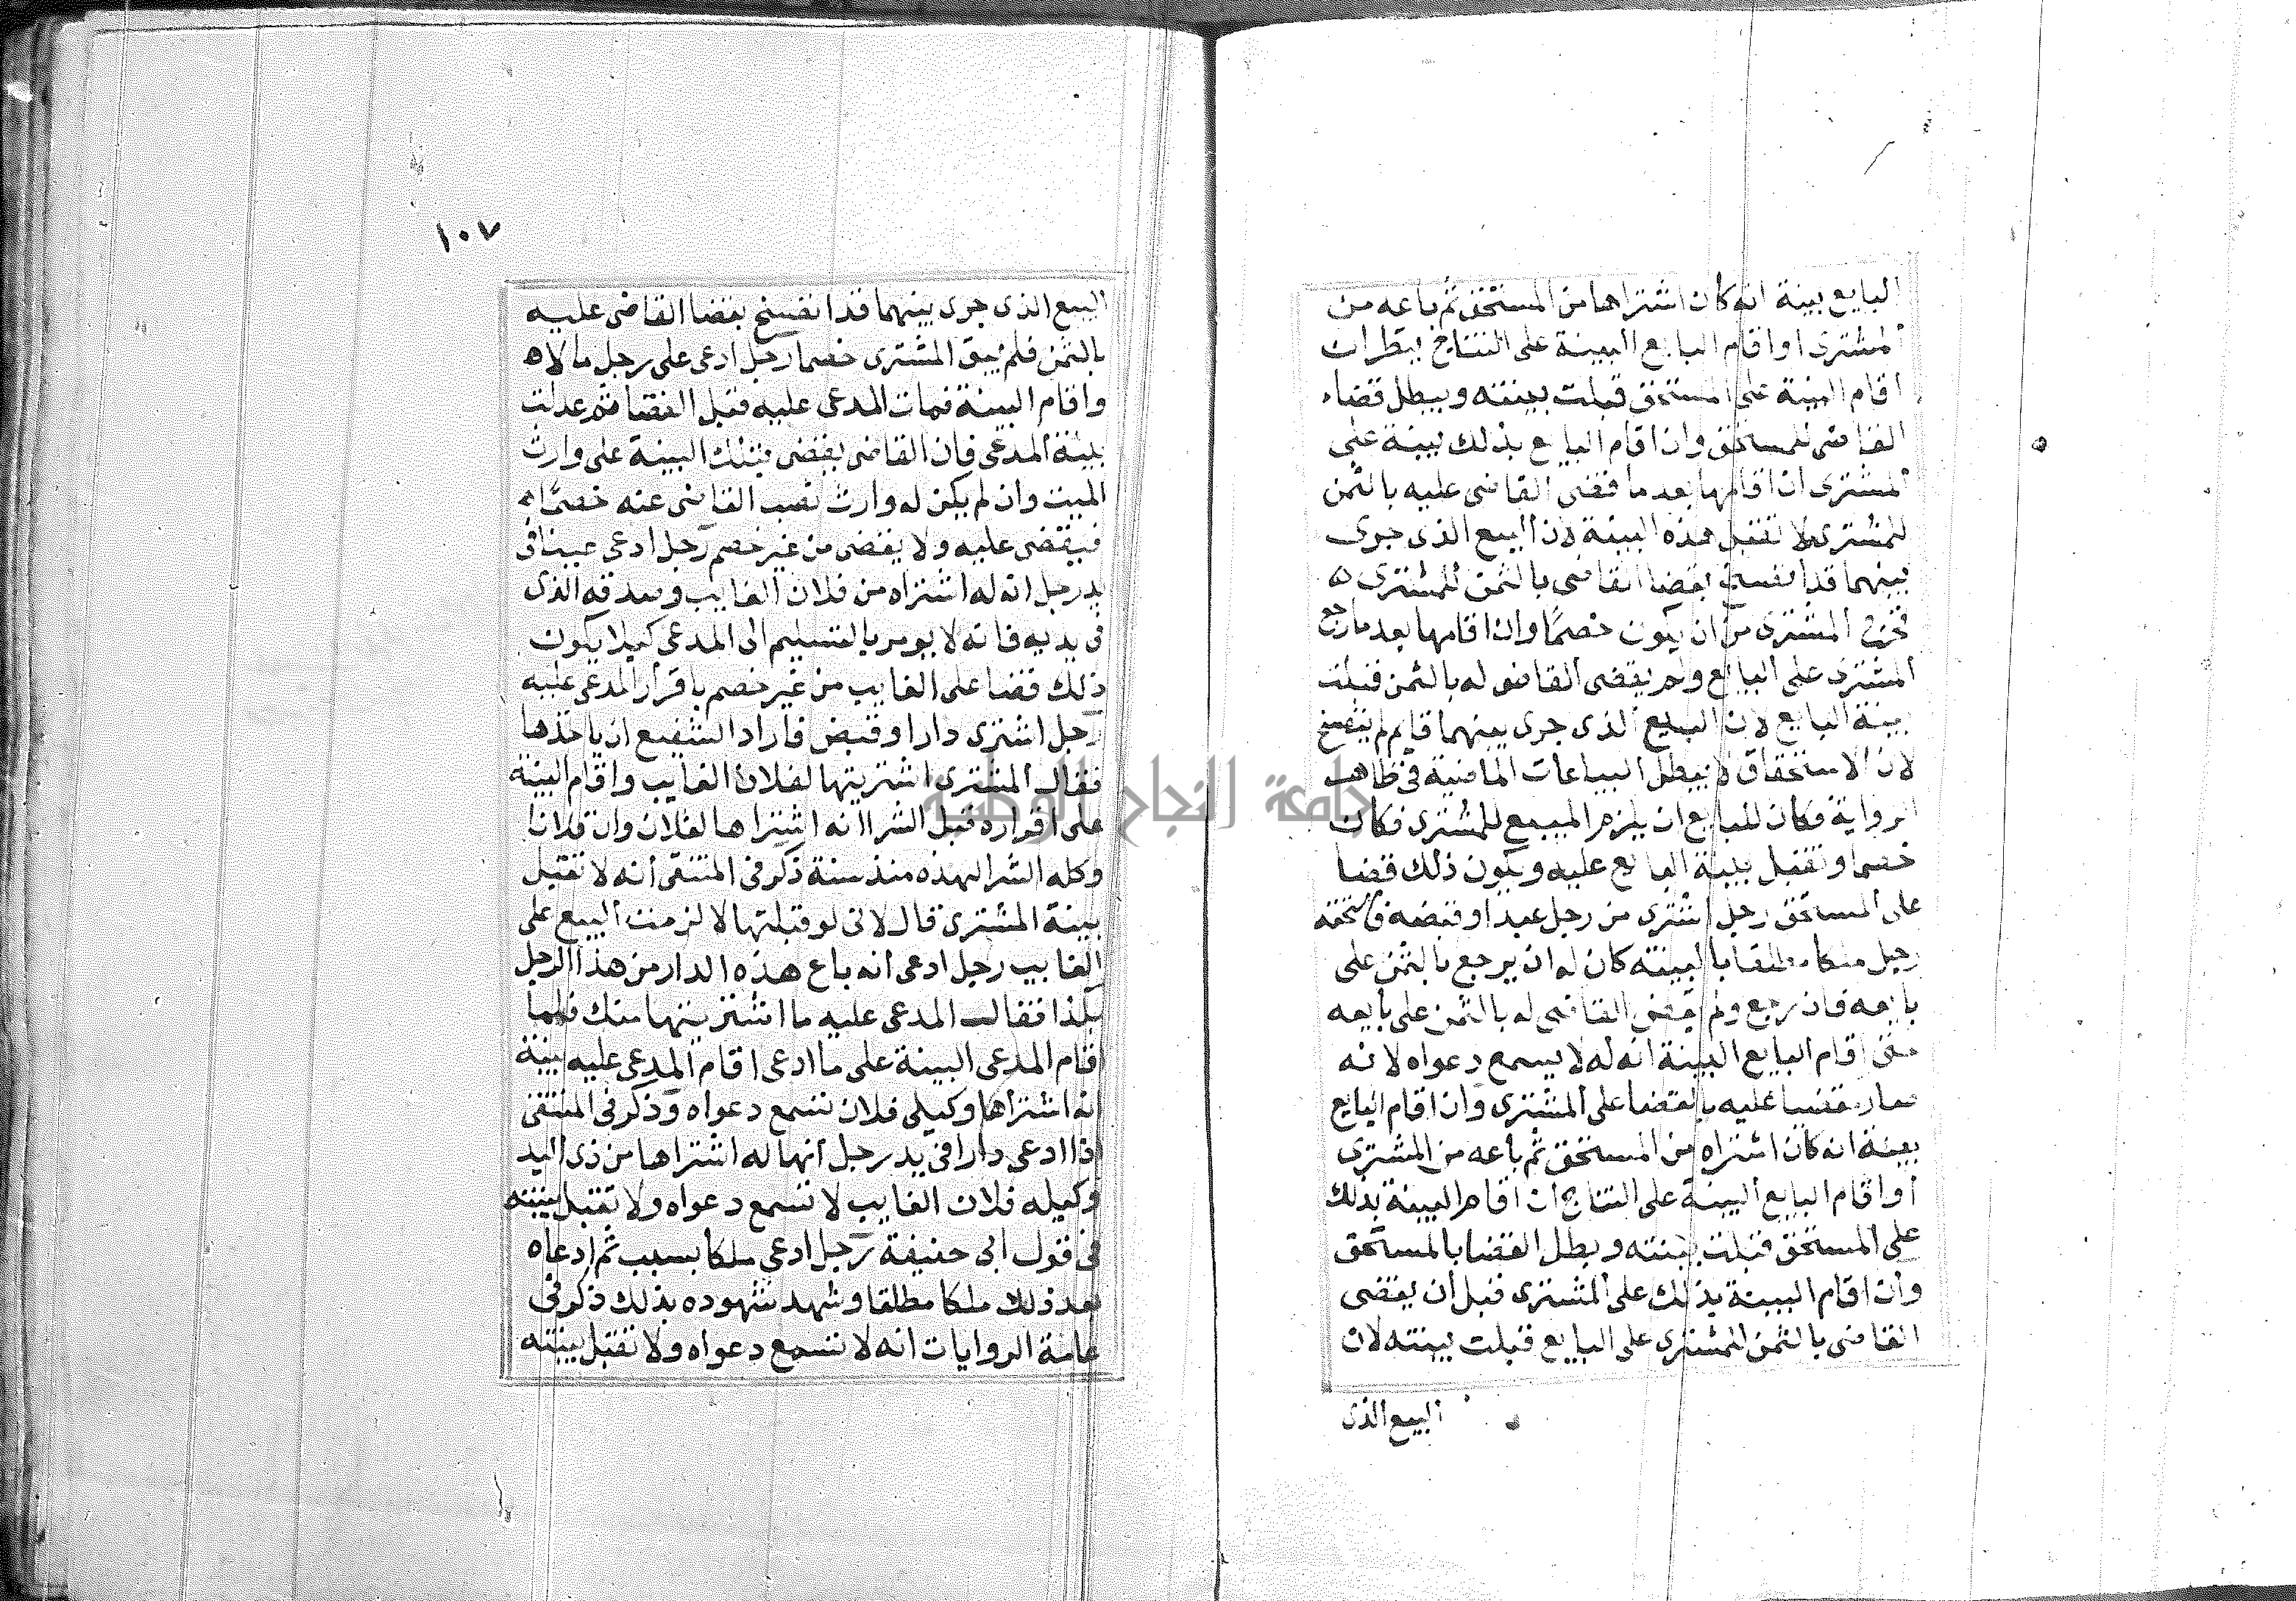 البايع بينة انه كان اشتراها من المستحق ثم باعه من
المشترى او اقام البايع البينة على النتاج ينظر ان
اقام البينة على المستحق قبلت بينته ويبطل قضاء
القاضى للمستحق وان اقام البايع بذلك بينة على
المشترى ان اقامها بعد ما قضى القاضى عليه بالثمن
للمشترى لا تقبل هذه البينة لان البيع الذى جرى
بينهما قد انفسخ بقضا القاضى بالثمن للمشترى
فخرج المشترى من ان يكون خصما وان اقامها بعد ما رجع
المشترى على البايع ولم يقضى القاضى له بالثمن قبلت
بينة البايع لان البيع الذى جرى بينهما قايم لم ينفسخ
لان الاستحقاق لا يبطل البياعات الماضية فى ظاهر
الرواية فكان للبايع ان يلزم المبيع للمشترى فكان
خصما وتقبل بينة البايع عليه ويكون ذلك قضا
على المستحق رجل اشترى من رجل عبدا وقبضه فاستحقه
رجل ملكا مطلقا بالبينة كان له ان يرجع بالثمن على
بايعه فان رجع ولم يقض القاضى له بالثمن على بايعه
حتى اقام البايع البينة انه له لا يسمع دعواه لانه
صار مقضيا عليه بالقضا على المشترى وان اقام البايع
بينة انه كان اشتراه من المستحق ثم باعه من المشترى
او اقام البايع البينة على النتاج ان اقام البينة بذلك
على المستحق قبلت بينته وبطل القضا بالمستحق
وان اقام البينة بذلك على المشترى قبل ان يقضى
القاضى بالثمن للمشترى على البايع قبلت بينته لان
البيع الذى
١٠٧
البيع الذى جرى بينهما قد انفسخ بقضا القاضى عليه
بالثمن فلم يبق المشترى خصما رجل ادعى على رجل مالا
واقام البينة فمات المدعى عليه قبل القضا ثم عدلت
بينة المدعى فان القاضى يقضى بتلك البينة على وارث
الميت وان لم يكن له وارث نصب القاضى عنه خصما
فيقضى عليه ولا يقضى من غير خصم رجل ادعى عينا فى
يد رجل انه له اشتراه من فلان الغايب وصدقه الذى
فى يديه فانه لا يومر بالتسليم الى المدعى كيلا يكون
ذلك قضا على الغايب من غير خصم باقرار المدعى عليه
رجل اشترى دارا وقبض فاراد الشفيع ان ياخذها
فقال المشترى اشتريتها لفلان الغايب واقام البينة
على اقراره قبل الشرا انه اشتراها لفلان وان فلانا
وكله الشرا لهذه منذ سنة ذكر فى المنتقى انه لا تقبل
بينة المشترى قال لانى لو قبلتها لالزمت البيع على
الغايب رجل ادعى انه باع هذه الدار من هذا الرجل
بكذا فقال المدعى عليه ما اشتريتها منك فلما
اقام المدعى البينة على ما ادعى اقام المدعى عليه بينة
انه اشتراها وكيلى فلان تسمع دعواه وذكر فى المنتقى
اذا ادعى دارا فى يد رجل انها له اشتراها من ذى اليد
وكيله فلان الغايب لا تسمع دعواه ولا تقبل بينته
فى قول ابى حنيفة رجل ادعى ملكا بسبب ثم ادعاه
بعد ذلك ملكا مطلقا وشهد شهوده بذلك ذكر فى
عامة الروايات انه لا تسمع دعواه ولا تقبل بينته
جامعة النجاح الوطنية